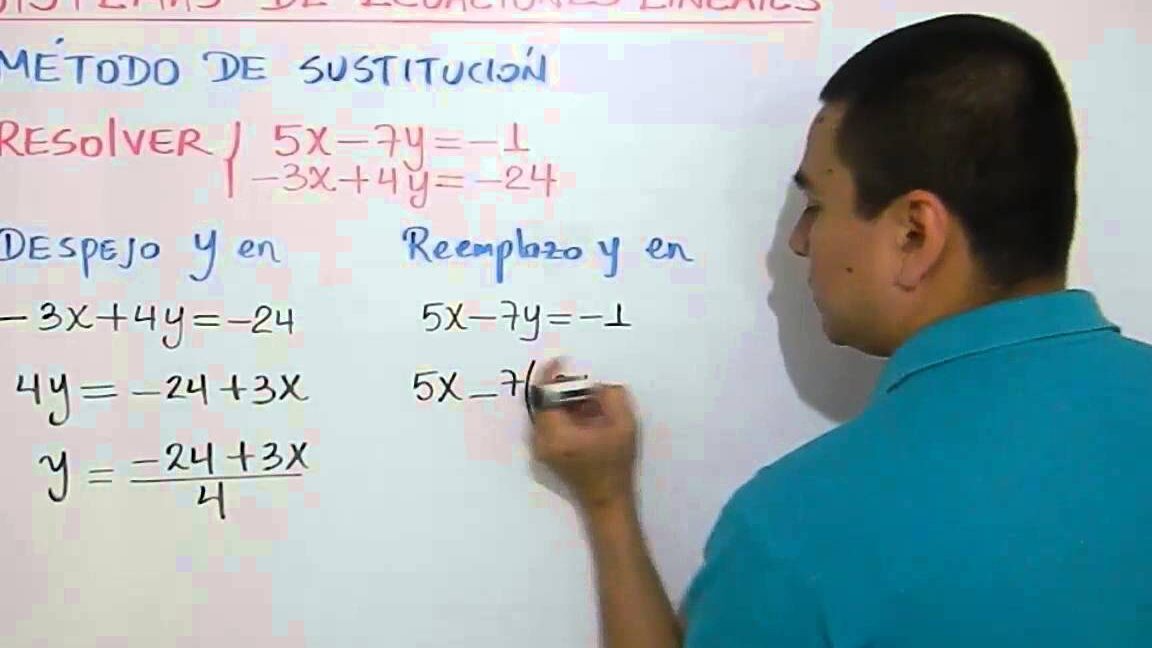 SISTEMAS DE ECUACIONES LINEALES
MÉTODO DE SUSTITUCIÓN
RESOLVER { 5X-7y=-1
-3X+4y=-24
DESPEJO y en
-3X+4y=-24
4y=-24+3X
y=-24+3X
4
Reemplazo y en
5X-7y=-1
5X-7(